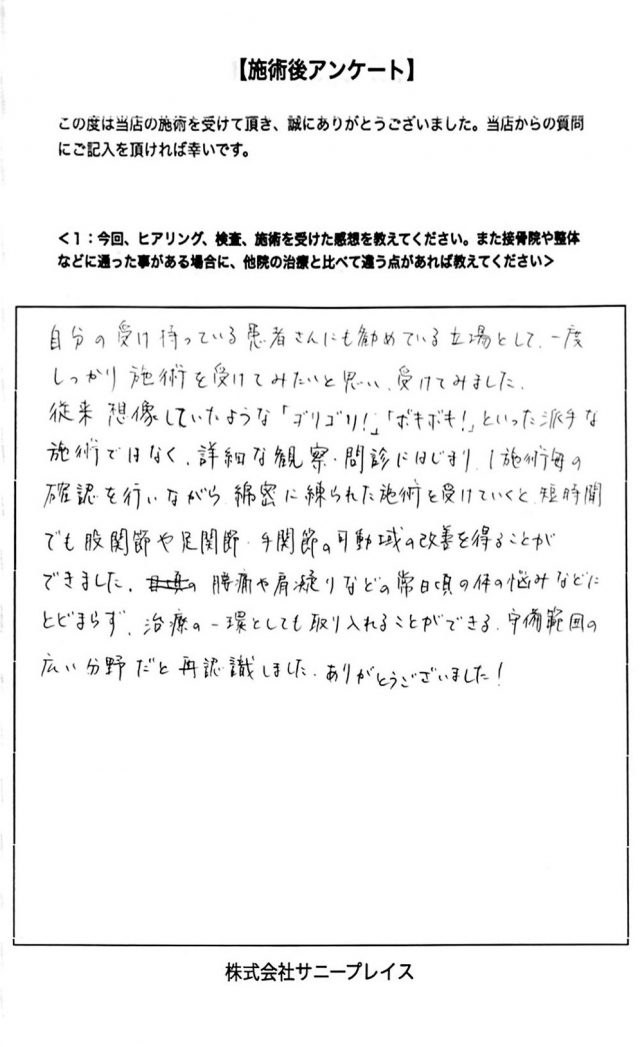 【施術後アンケート】
この度は当店の施術を受けて頂き、誠にありがとうございました。当店からの質問
にご記入を頂ければ幸いです。
＜1：今回、ヒアリング、検査、施術を受けた感想を教えてください。また接骨院や整体
などに通った事がある場合に、他院の治療と比べて違う点があれば教えてください＞
自分の受け持っている患者さんにも勧めている立場として、一度
しっかり施術を受けてみたいと思い、受けてみました。
従来想像していたような「ゴリゴリ！」「ボキボキ！」といった派手な
施術ではなく、詳細な観察・問診にはじまり、1施術毎の
確認を行いながら綿密に練られた施術を受けていくと、短時間
でも股関節や足関節・手関節の可動域の改善を得ることが
できました。の腰痛や肩凝りなどの常日頃の体の悩みなどに
とどまらず、治療の一環としても取り入れることができる、守備範囲の
広い分野だと再認識しました。ありがとうございました！
株式会社サニープレイス